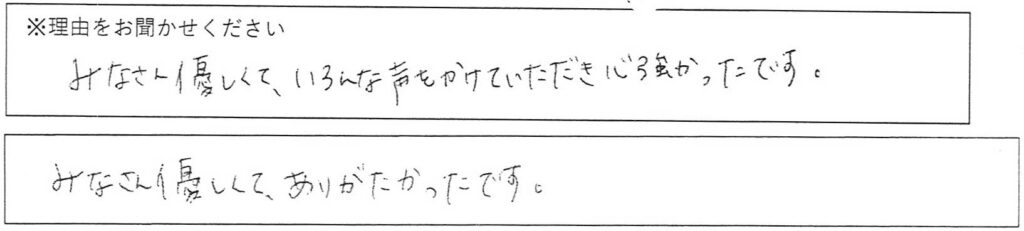 ※理由をお聞かせください
みなさん優しくて、いろんな声をかけていただき心強かったです。
みなさん優しくて、ありがたかったです。